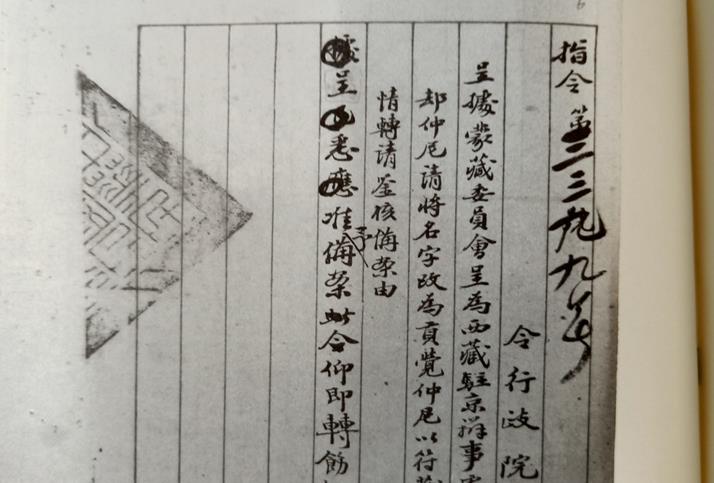 指令第二三九九号
令行政院
呈據蒙藏委員會呈為西藏駐京辦事
却仲尼請將名字改為貢覺仲尼以符
情轉請鑒核備案由
據呈悉應准予備案此令仰即轉飭